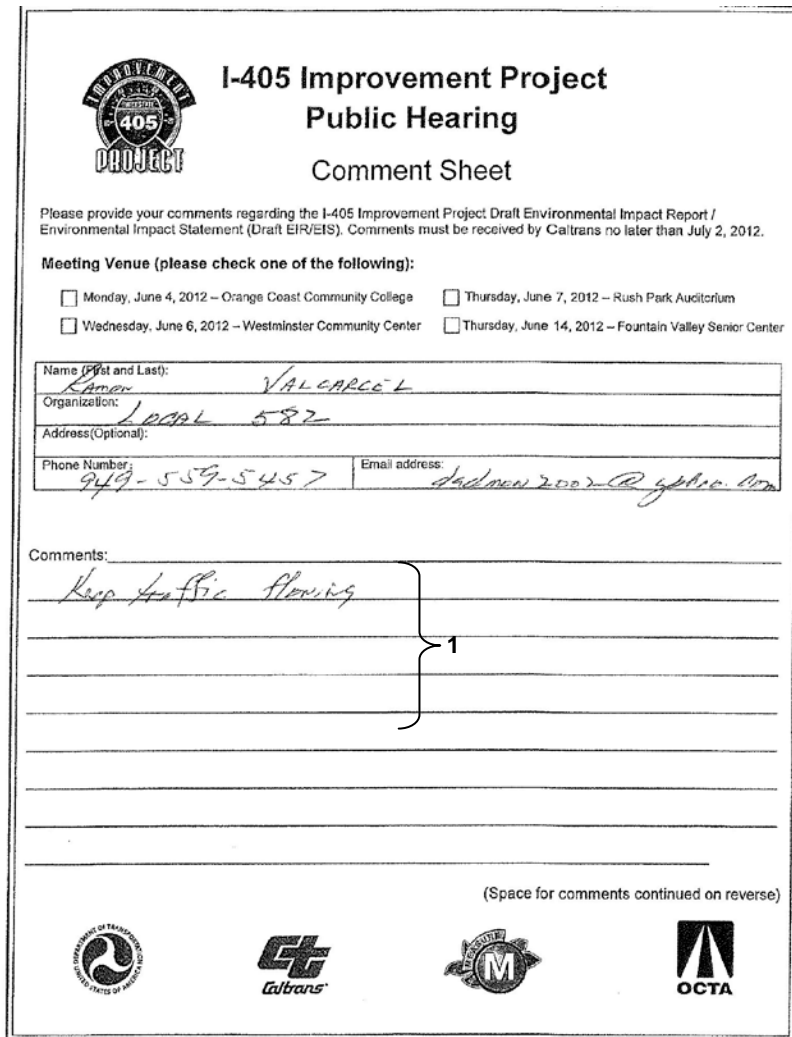 IMPROVEMENT
INTERSTATE
405
PROJECT
I-405 Improvement Project
Public Hearing
Comment Sheet
Please provide your comments regarding the I-405 Improvement Project Draft Environmental Impact Report /
Environmental Impact Statement (Draft EIR/EIS). Comments must be received by Caltrans no later than July 2, 2012.
Meeting Venue (please check one of the following):
Monday, June 4, 2012 – Orange Coast Community College
Thursday, June 7, 2012 – Rush Park Auditorium
Wednesday, June 6, 2012 – Westminster Community Center
Thursday, June 14, 2012 – Fountain Valley Senior Center
Name (First and Last):
Ramon VALCARCEL
Organization:
LOCAL 582
Address(Optional):
Phone Number:
949-559-5457
Email address:
@yahoo.com
Comments:
Keep traffic flowing
1
(Space for comments continued on reverse)
DEPARTMENT OF TRANSPORTATION
UNITED STATES OF AMERICA
Caltrans
MEASURE
M
OCTA